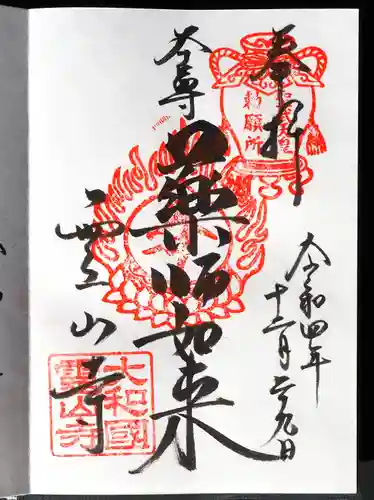 奉拝
聖武天皇
勅願所
令和四年
十二月二九日
本尊
薬師如来
霊山寺
大和國
霊山寺